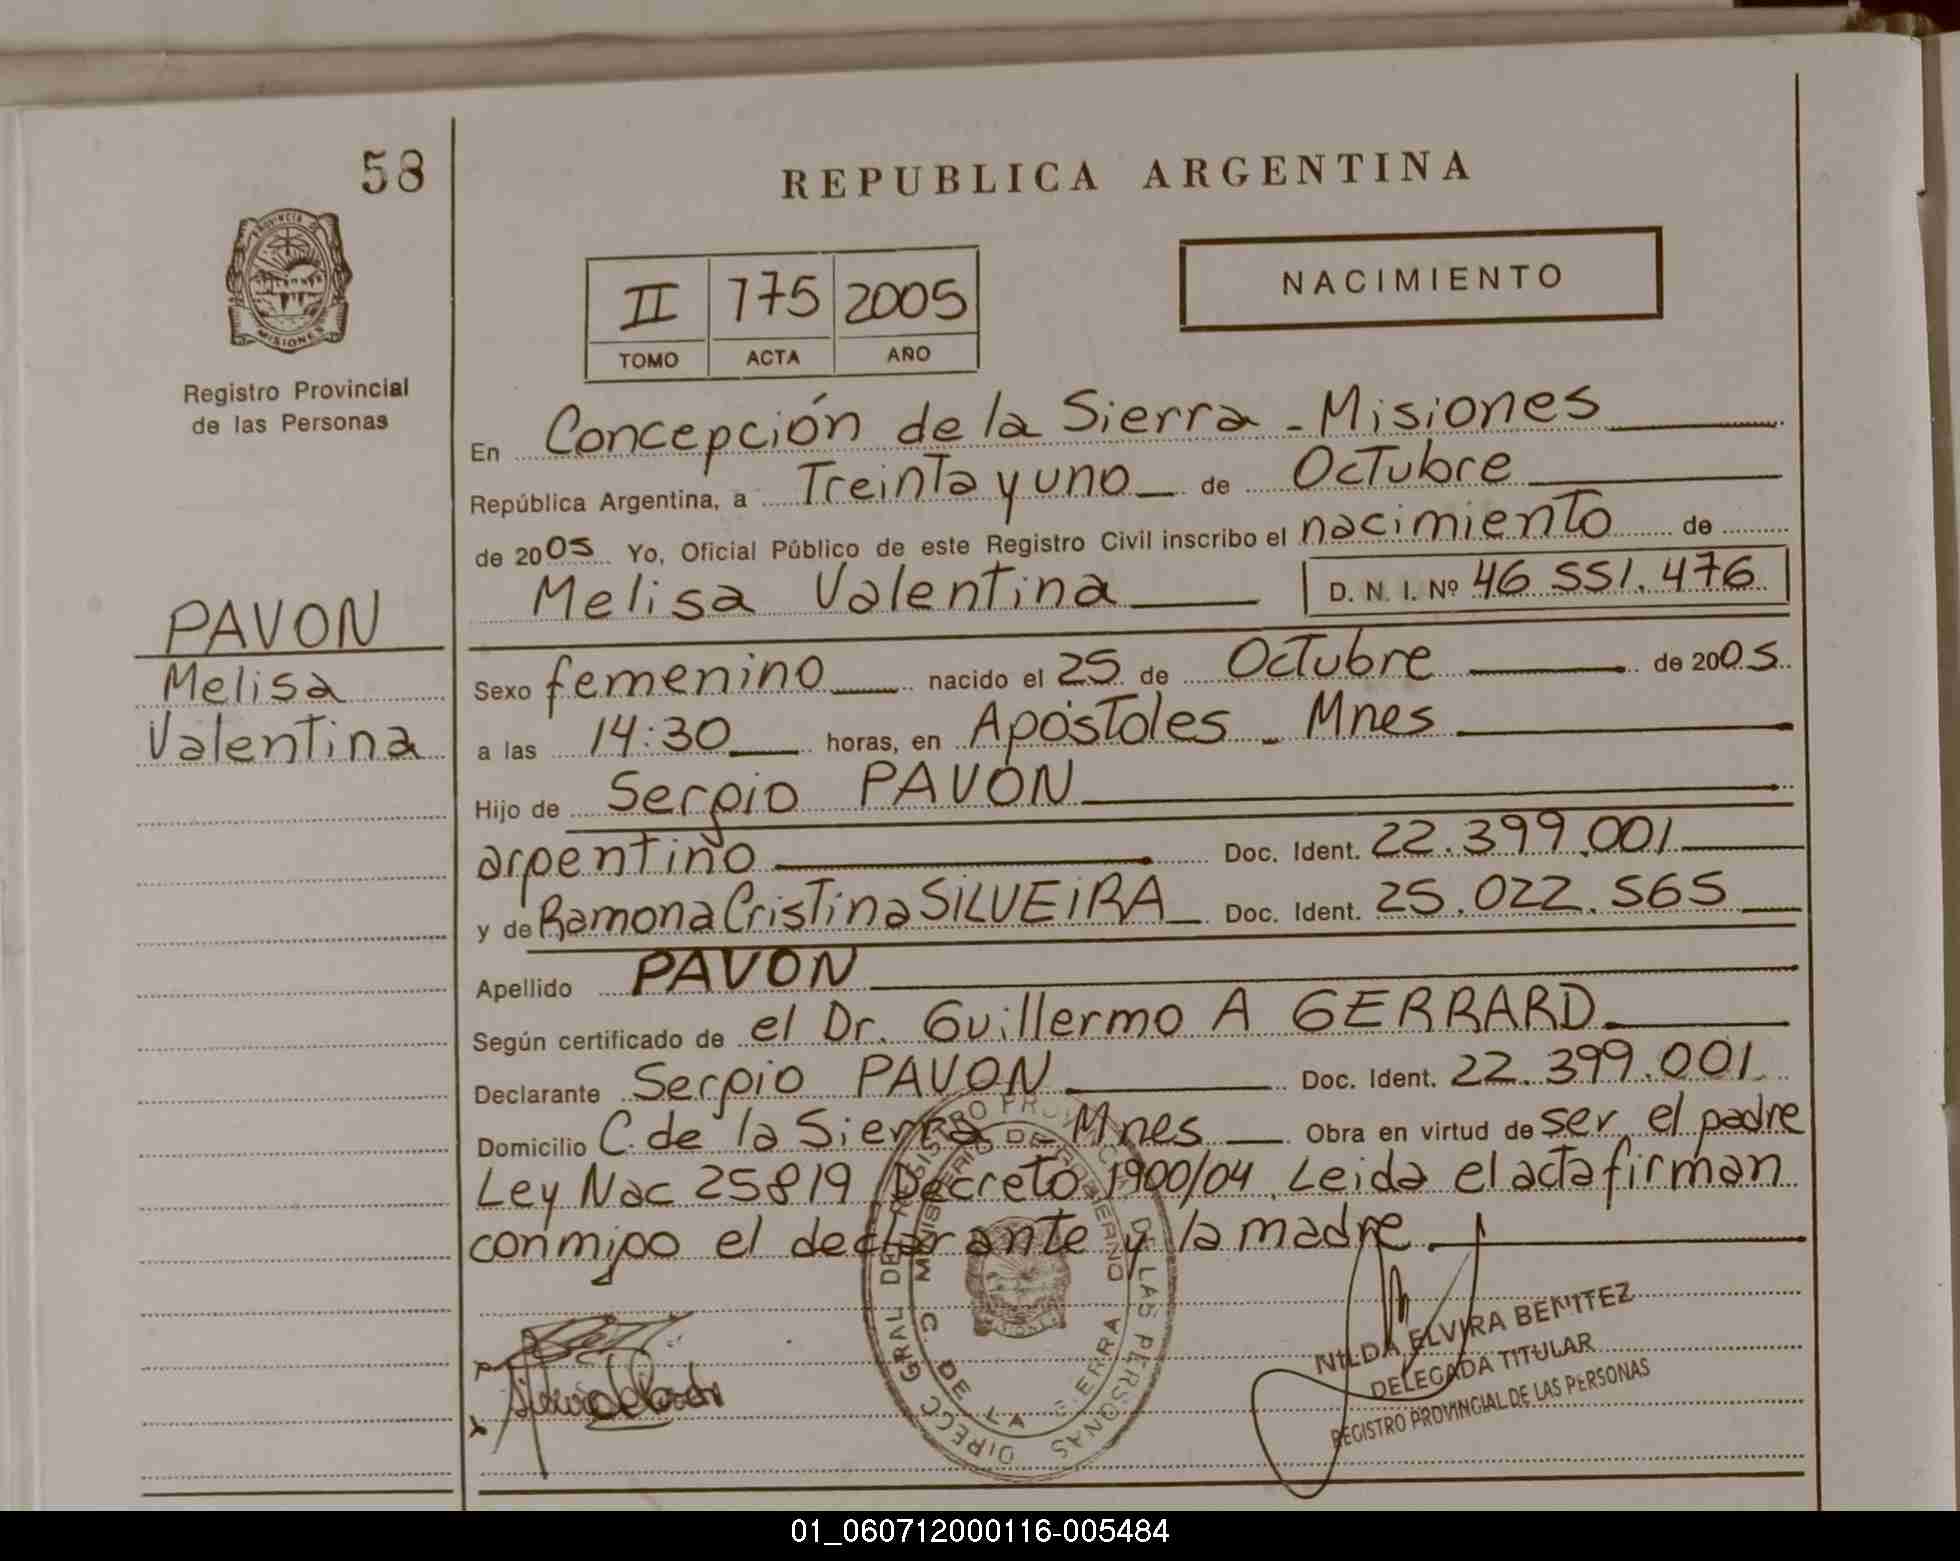 58
REPUBLICA ARGENTINA
PROVINCIA DE
MISIONES
Registro Provincial
de las Personas
II 175 2005
TOMO ACTA AÑO
NACIMIENTO
En Concepción de la Sierra - Misiones
República Argentina, a Treinta y uno de Octubre
de 2005 Yo, Oficial Público de este Registro Civil inscribo el nacimiento de
Melisa Valentina D. N. I. Nº 46.551.476
PAVON
Melisa
Valentina
Sexo femenino nacido el 25 de Octubre de 2005
a las 14:30 horas, en Apóstoles - Mnes
Hijo de Sergio PAVÓN
argentino Doc. Ident. 22.399.001
y de Ramona Cristina SILVEIRA Doc. Ident. 25.022.565
Apellido PAVON
Según certificado de el Dr. Guillermo A GERRARD
Declarante Sergio PAVON Doc. Ident. 22.399.001
Domicilio C. de la Sierra - Mnes Obra en virtud de ser el padre
Ley Nac 25819 Decreto 1900/04. Leida el acta firman
conmigo el declarante y la madre
DIRECC GRAL DEL REGISTRO PROVINCIAL DE LAS PERSONAS
MINISTERIO DE GOBIERNO
C. DE LA SIERRA
NILDA ELVIRA BENITEZ
DELEGADA TITULAR
REGISTRO PROVINCIAL DE LAS PERSONAS
01_060712000116-005484